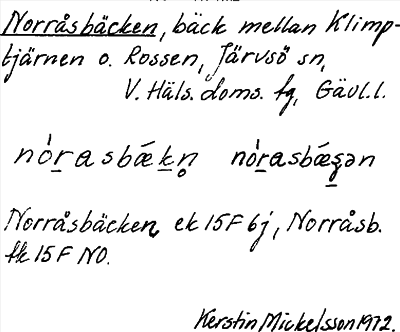 Norråsbäcken, bäck mellan Klimp-
tjärnen o. Rossen, Järvsö sn,
V. Häls. doms. fg, Gävl.l.
nórasbǽkn̥ nórasbǽʂən
Norråsbäcken ek 15F 6j, Norråsb.
tk 15 F NO.
Kerstin Mickelsson 1972.